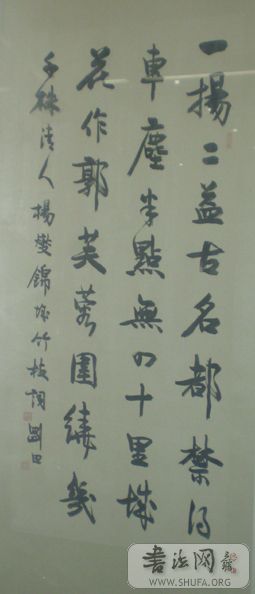 一揚二益古名都禁得
車塵半點無四十里城
花作郭芙蓉圍繞幾
千株清人楊燮錦城竹枝詞劉
書法网
WWW.SHUFA.ORG